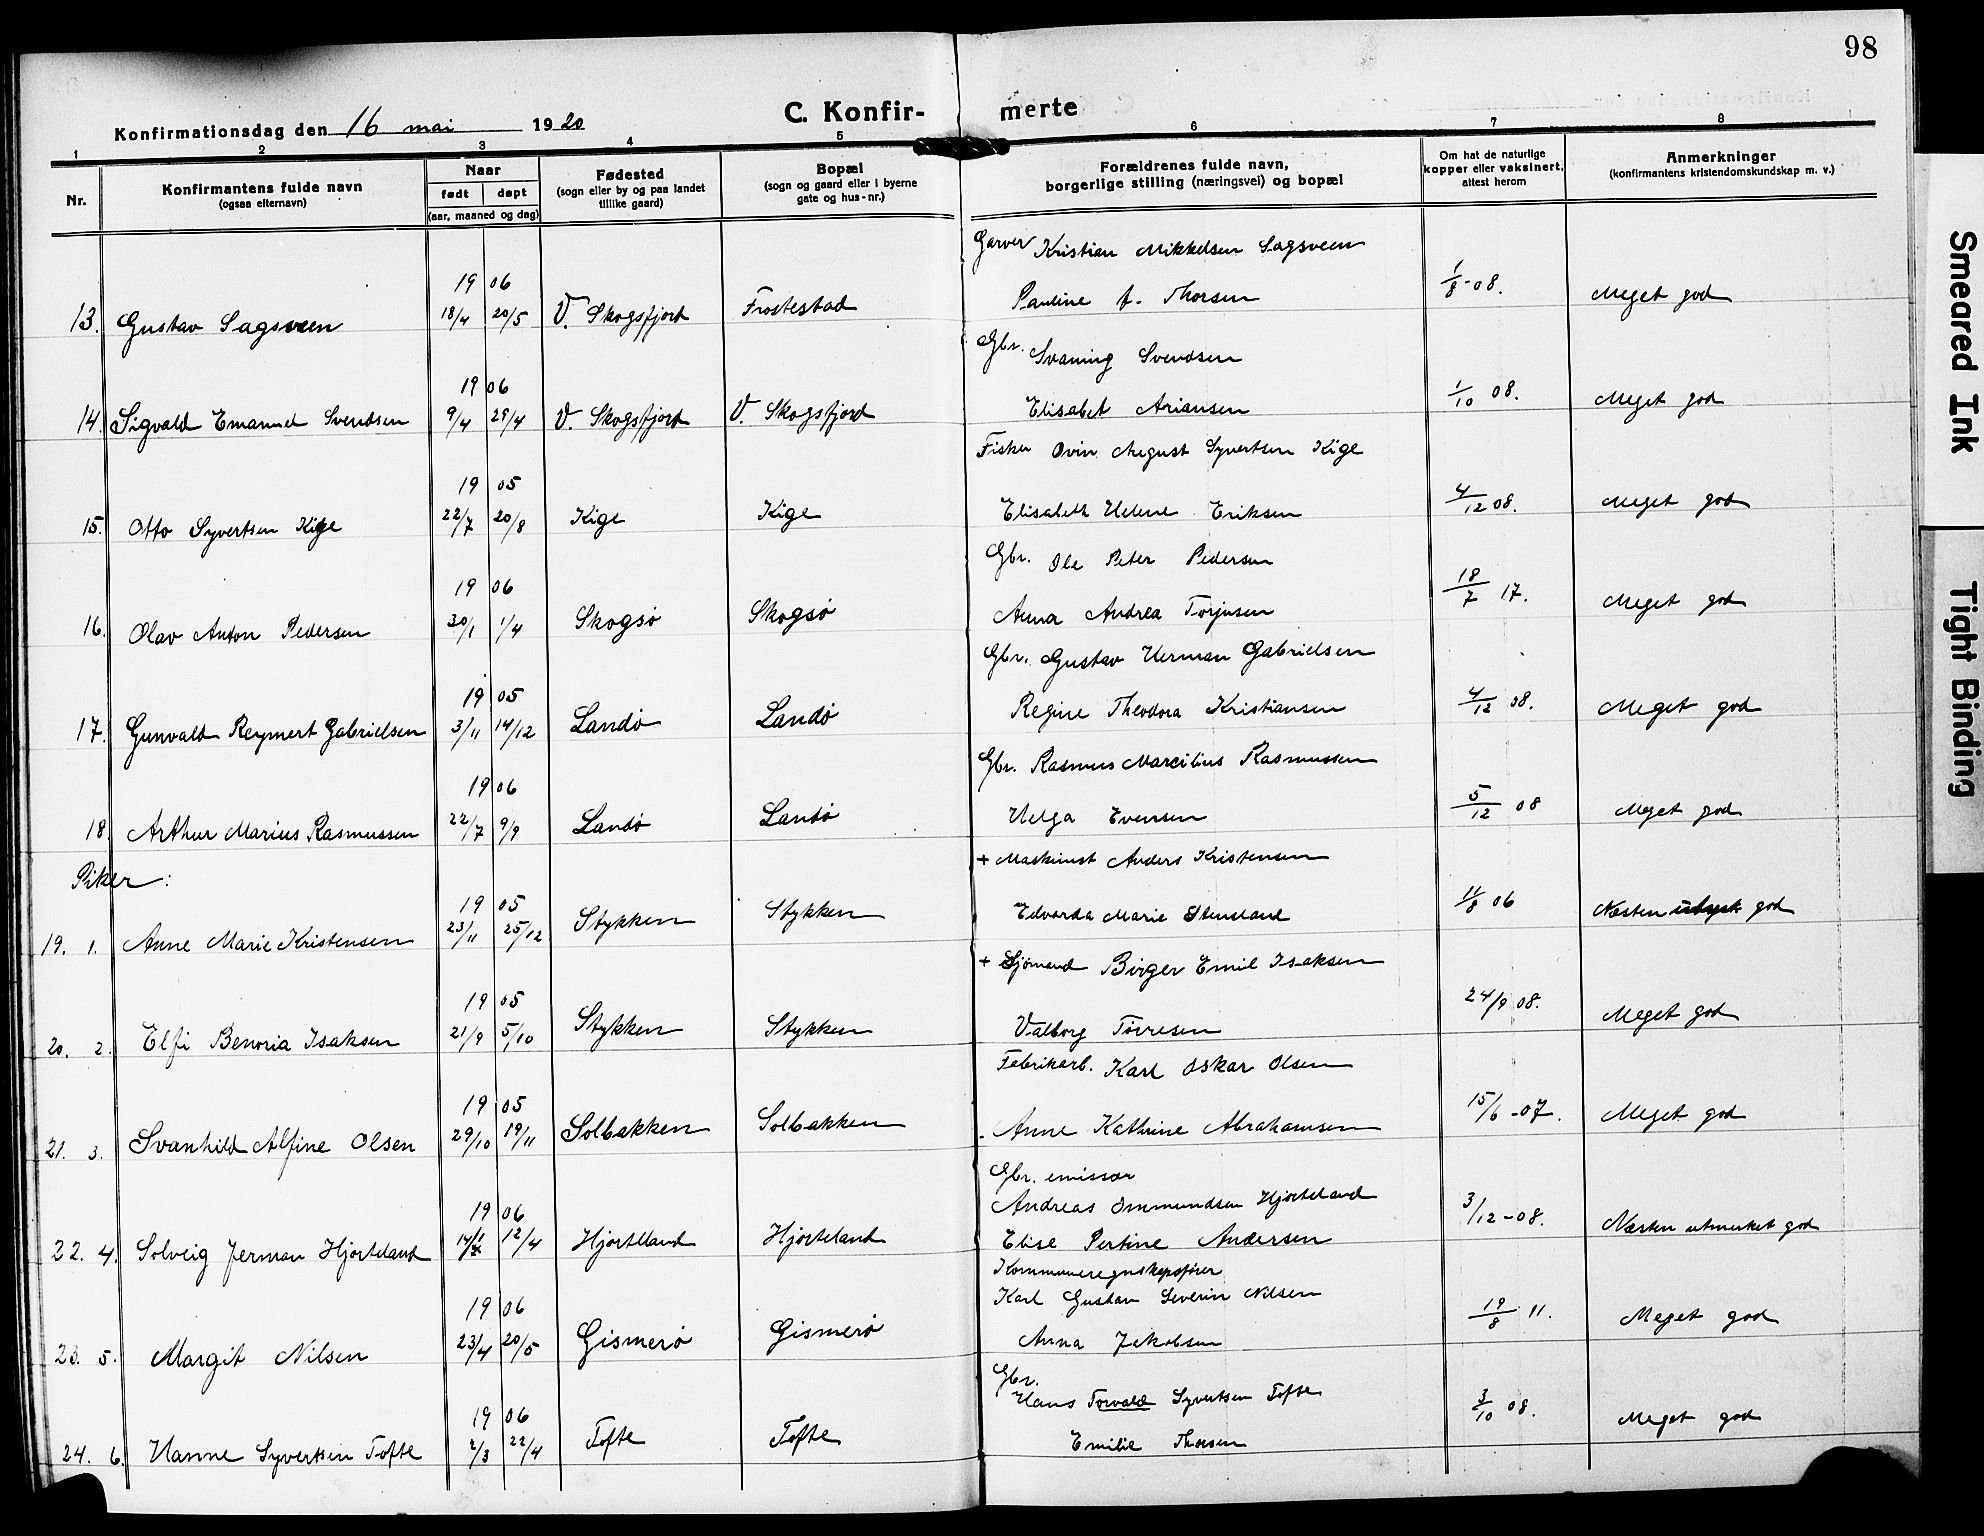 98
C. Konfir- merte
Konfirmationsdag den 16 mai 1920
1 2 3 4 5 6 7 8
Nr.
Konfirmantens fulde navn
(ogsaa efternavn)
Naar
født døpt
(aar, maaned og dag)
Fødested
(sogn eller by og paa landet
tillike gaard)
Bopæl
(sogn og gaard eller i byerne
gate og hus-nr.)
Forældrenes fulde navn,
borgerlige stilling (næringsvei) og bopæl
Om hat de naturlige
kopper eller vaksinert,
attest herom
Anmerkninger
(konfirmantens kristendomskundskap m. v.)
Garver Kristian Mikkelsen Sagsveen
19 06
13. Gustav Sagsveen 18/4 20/5 V. Skogsfjord Frostestad Pauline f. Thorsen 1/8-08. Meget god
Gbr. Svaning Svendsen
19 06
14. Sigvald Emanuel Svendsen 9/4 29/4 V. Skogsfjord V. Skogsfjord Elisabet Ariansen 1/10 08. Meget god
Fisker Ovin August Syvertsen Kige
19 05
15. Otto Syvertsen Kige 22/7 20/8 Kige Kige Elisabeth Helene Eriksen 4/12 08. Meget god
Gbr. Ole Peter Pedersen
19 06
16. Olav Anton Pedersen 30/1 1/4 Skogsø Skogsø Anna Andrea Torjusen 18/7 17. Meget god
Gbr. Gustav Herman Gabrielsen
19 05
17. Gunvald Reymert Gabrielsen 3/11 14/12 Landø Landø Regine Theodora Kristiansen 4/12 08. Meget god
Gbr. Rasmus Marcilius Rasmussen
19 06
18. Arthur Marius Rasmussen 22/7 9/9 Landø Landø Helga Evensen 5/12 08 Meget god
Piker:
+ Maskinist Anders Kristensen
19 05
19. 1. Anne Marie Kristensen 23/11 25/12 Stykken Stykken Edvarda Marie Stensland 11/8 06 Næsten god
+ Sjømand Birger Emil Isaksen
19 05
20. 2. Elfi Benoria Isaksen 21/9 5/10 Stykken Stykken Valborg Tørresen 24/9 08. Meget god
Fabrikarb. Karl Oskar Olsen
19 05
21. 3. Svanhild Alfine Olsen 29/10 19/11 Solbakken Solbakken Anne Kathrine Abrahamsen 15/6-07. Meget god
Gbr. emissær
Andreas Ommundsen Hjorteland
19 06
22. 4. Solveig Jerman Hjorteland 14/1 12/4 Hjorteland Hjorteland Elise Pertine Andersen 3/12-08. Næsten utmerket god
Kommuneregnskapsfører
Karl Gustav Severin Nilsen
19 06
23. 5. Margit Nilsen 23/4 20/5 Gismerø Gismerø Anna Jakobsen 19/8 11. Meget god
Gbr.
Hans Torvald Syvertsen Tofte
19 06
24. 6. Hanne Syvertsen Tofte 2/3 22/4 Tofte Tofte Emilie Thorsen 3/10 08. Meget god
Smeared Ink
Tight Binding